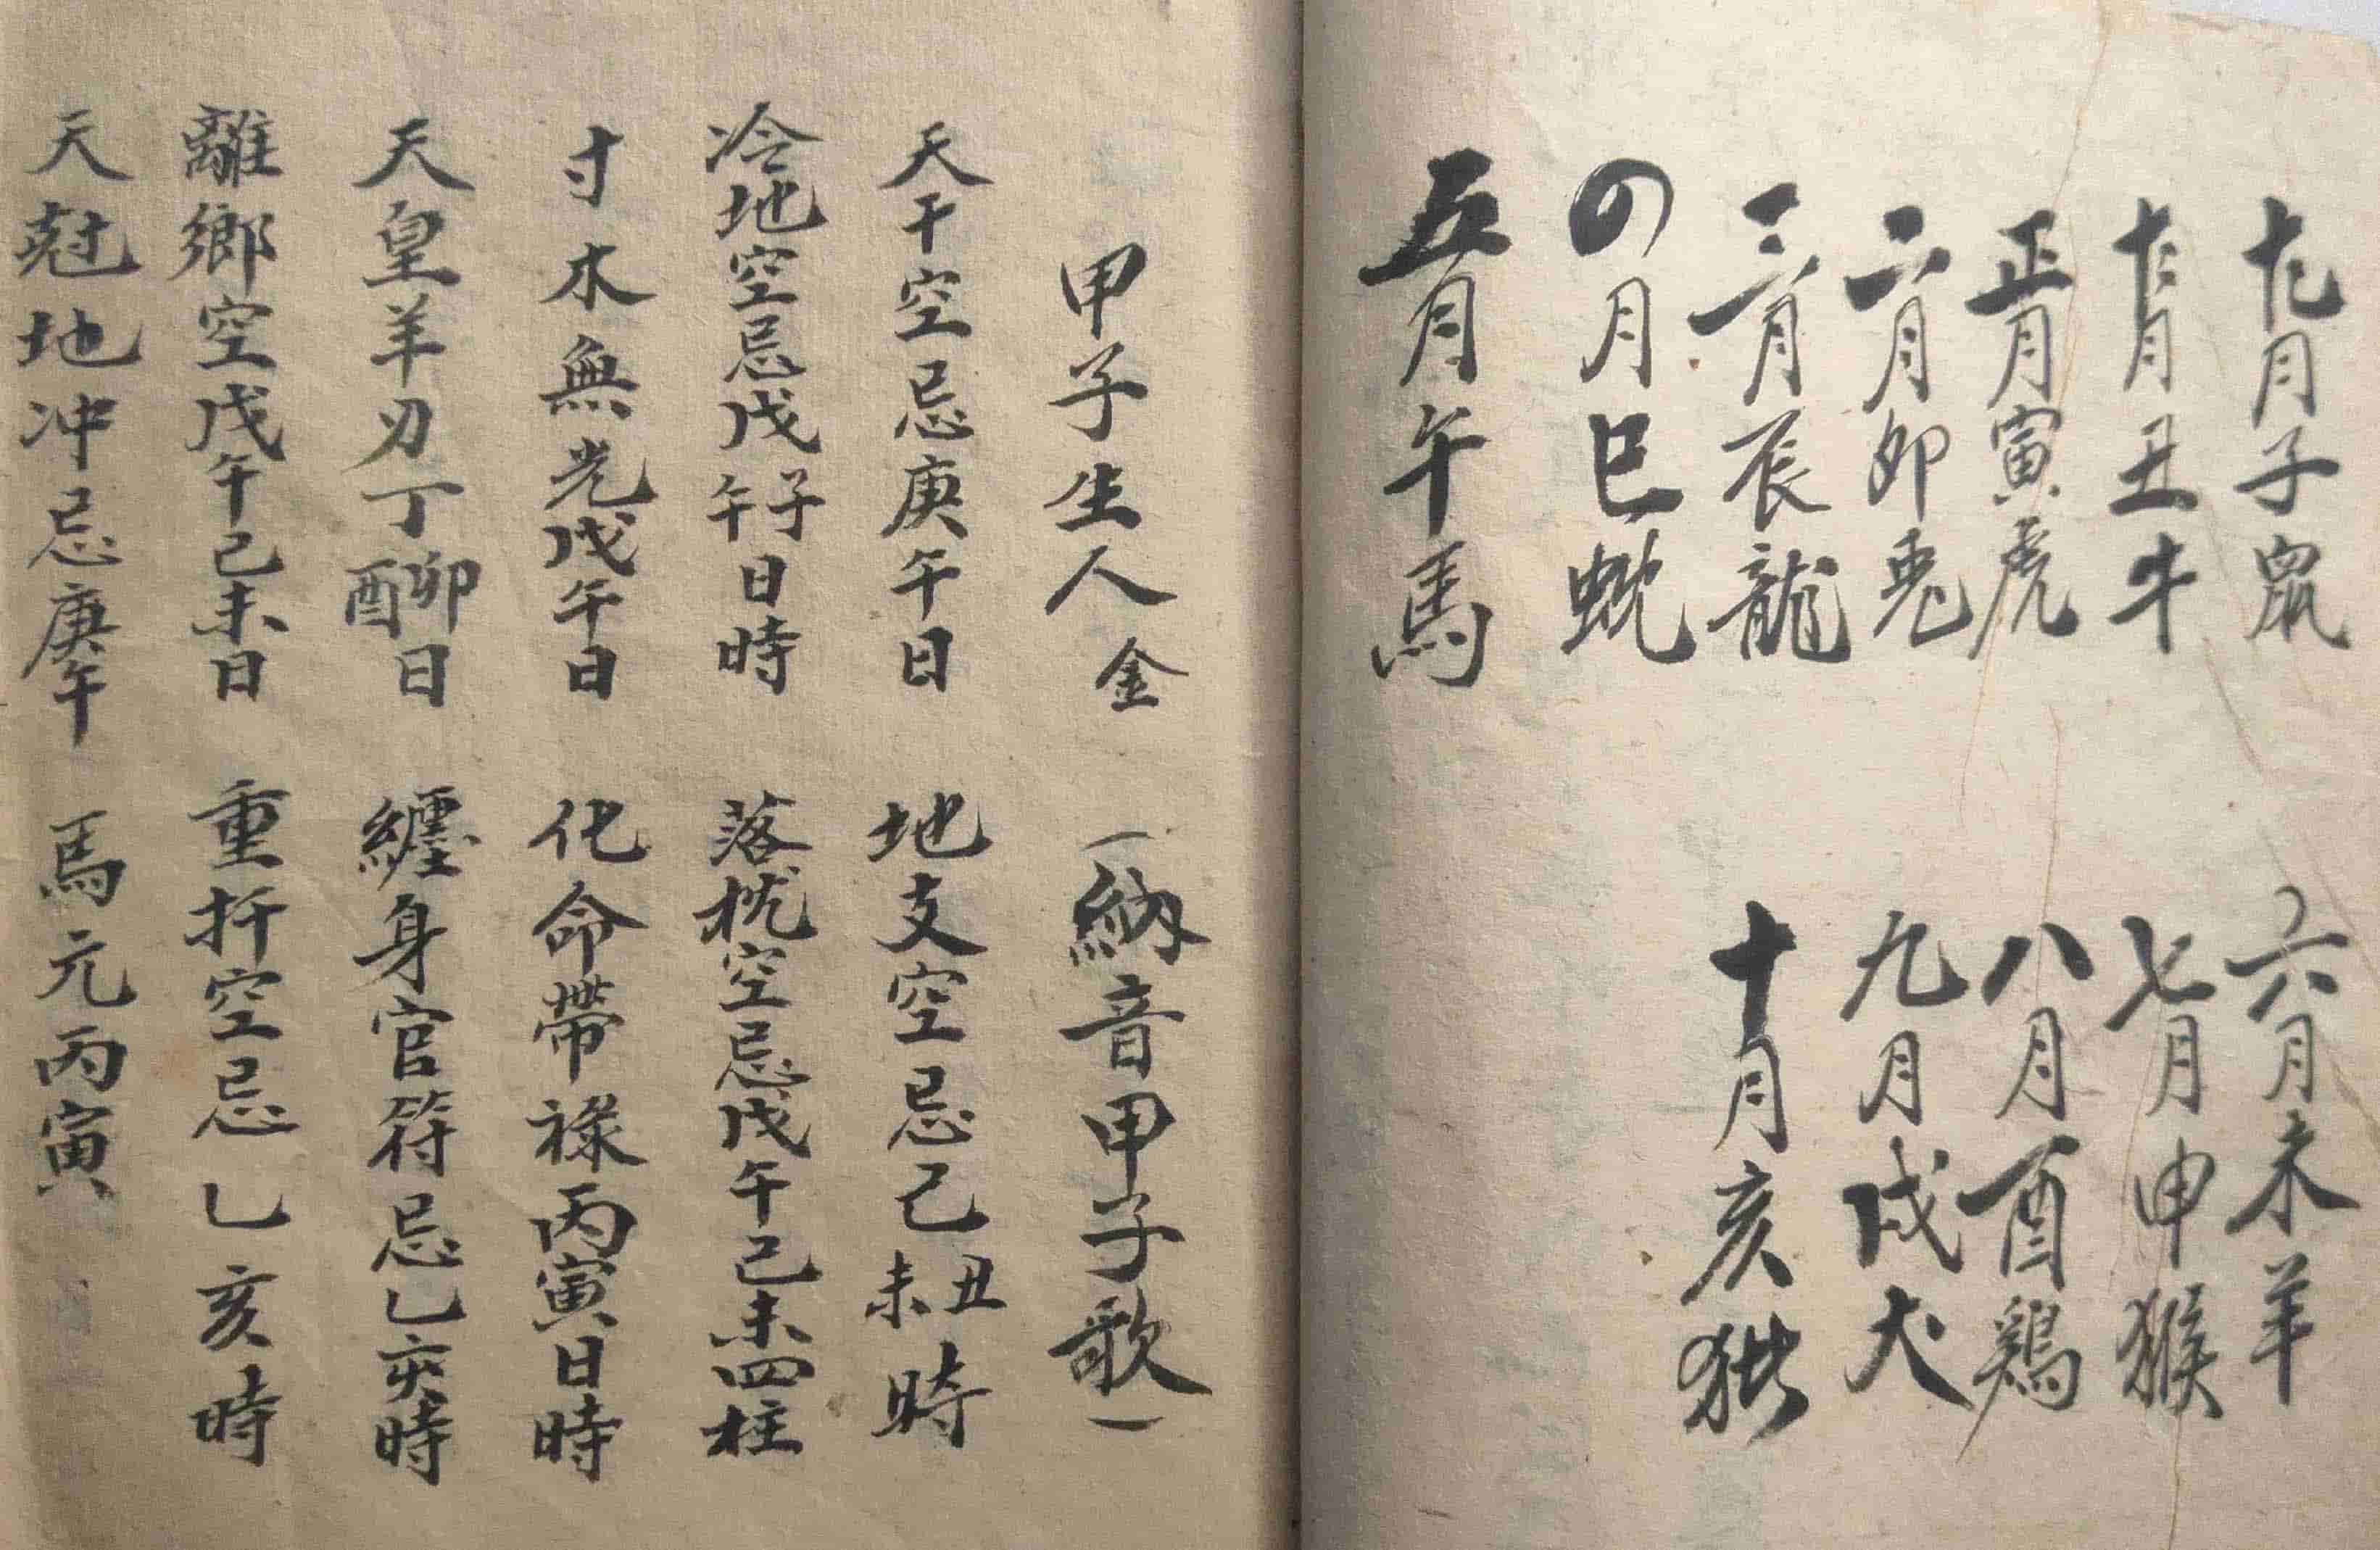 十一月子鼠
十二月丑牛
正月寅虎
二月卯兎
三月辰龍
四月巳蛇
五月午馬
六月未羊
七月申猴
八月酉鷄
九月戌犬
十月亥猪
甲子生人金
(納音甲子歌)
天干空忌庚午日
地支空忌己丑未時
冷地空忌戊子午日時
落枕空忌戊午己未四柱
寸木無光戊午日
化命帶祿丙寅日時
天皇羊刃丁卯酉日
纏身官符忌乙亥時
離鄉空戊午己未日
重折空忌乙亥時
天尅地冲忌庚午
馬元丙寅